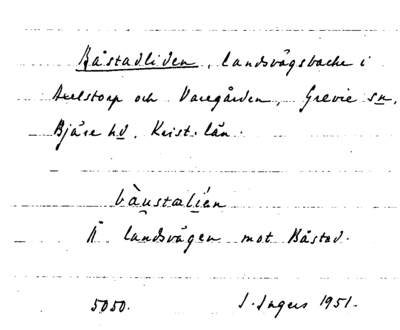 Båstadliden, landsvägsbacke i
Axelstorp och Varegården, Grevie sn,
Bjäre hd, Krist. län.
bàustalíen
Å landsvägen mot Båstad.
5050. I. Ingers 1951.